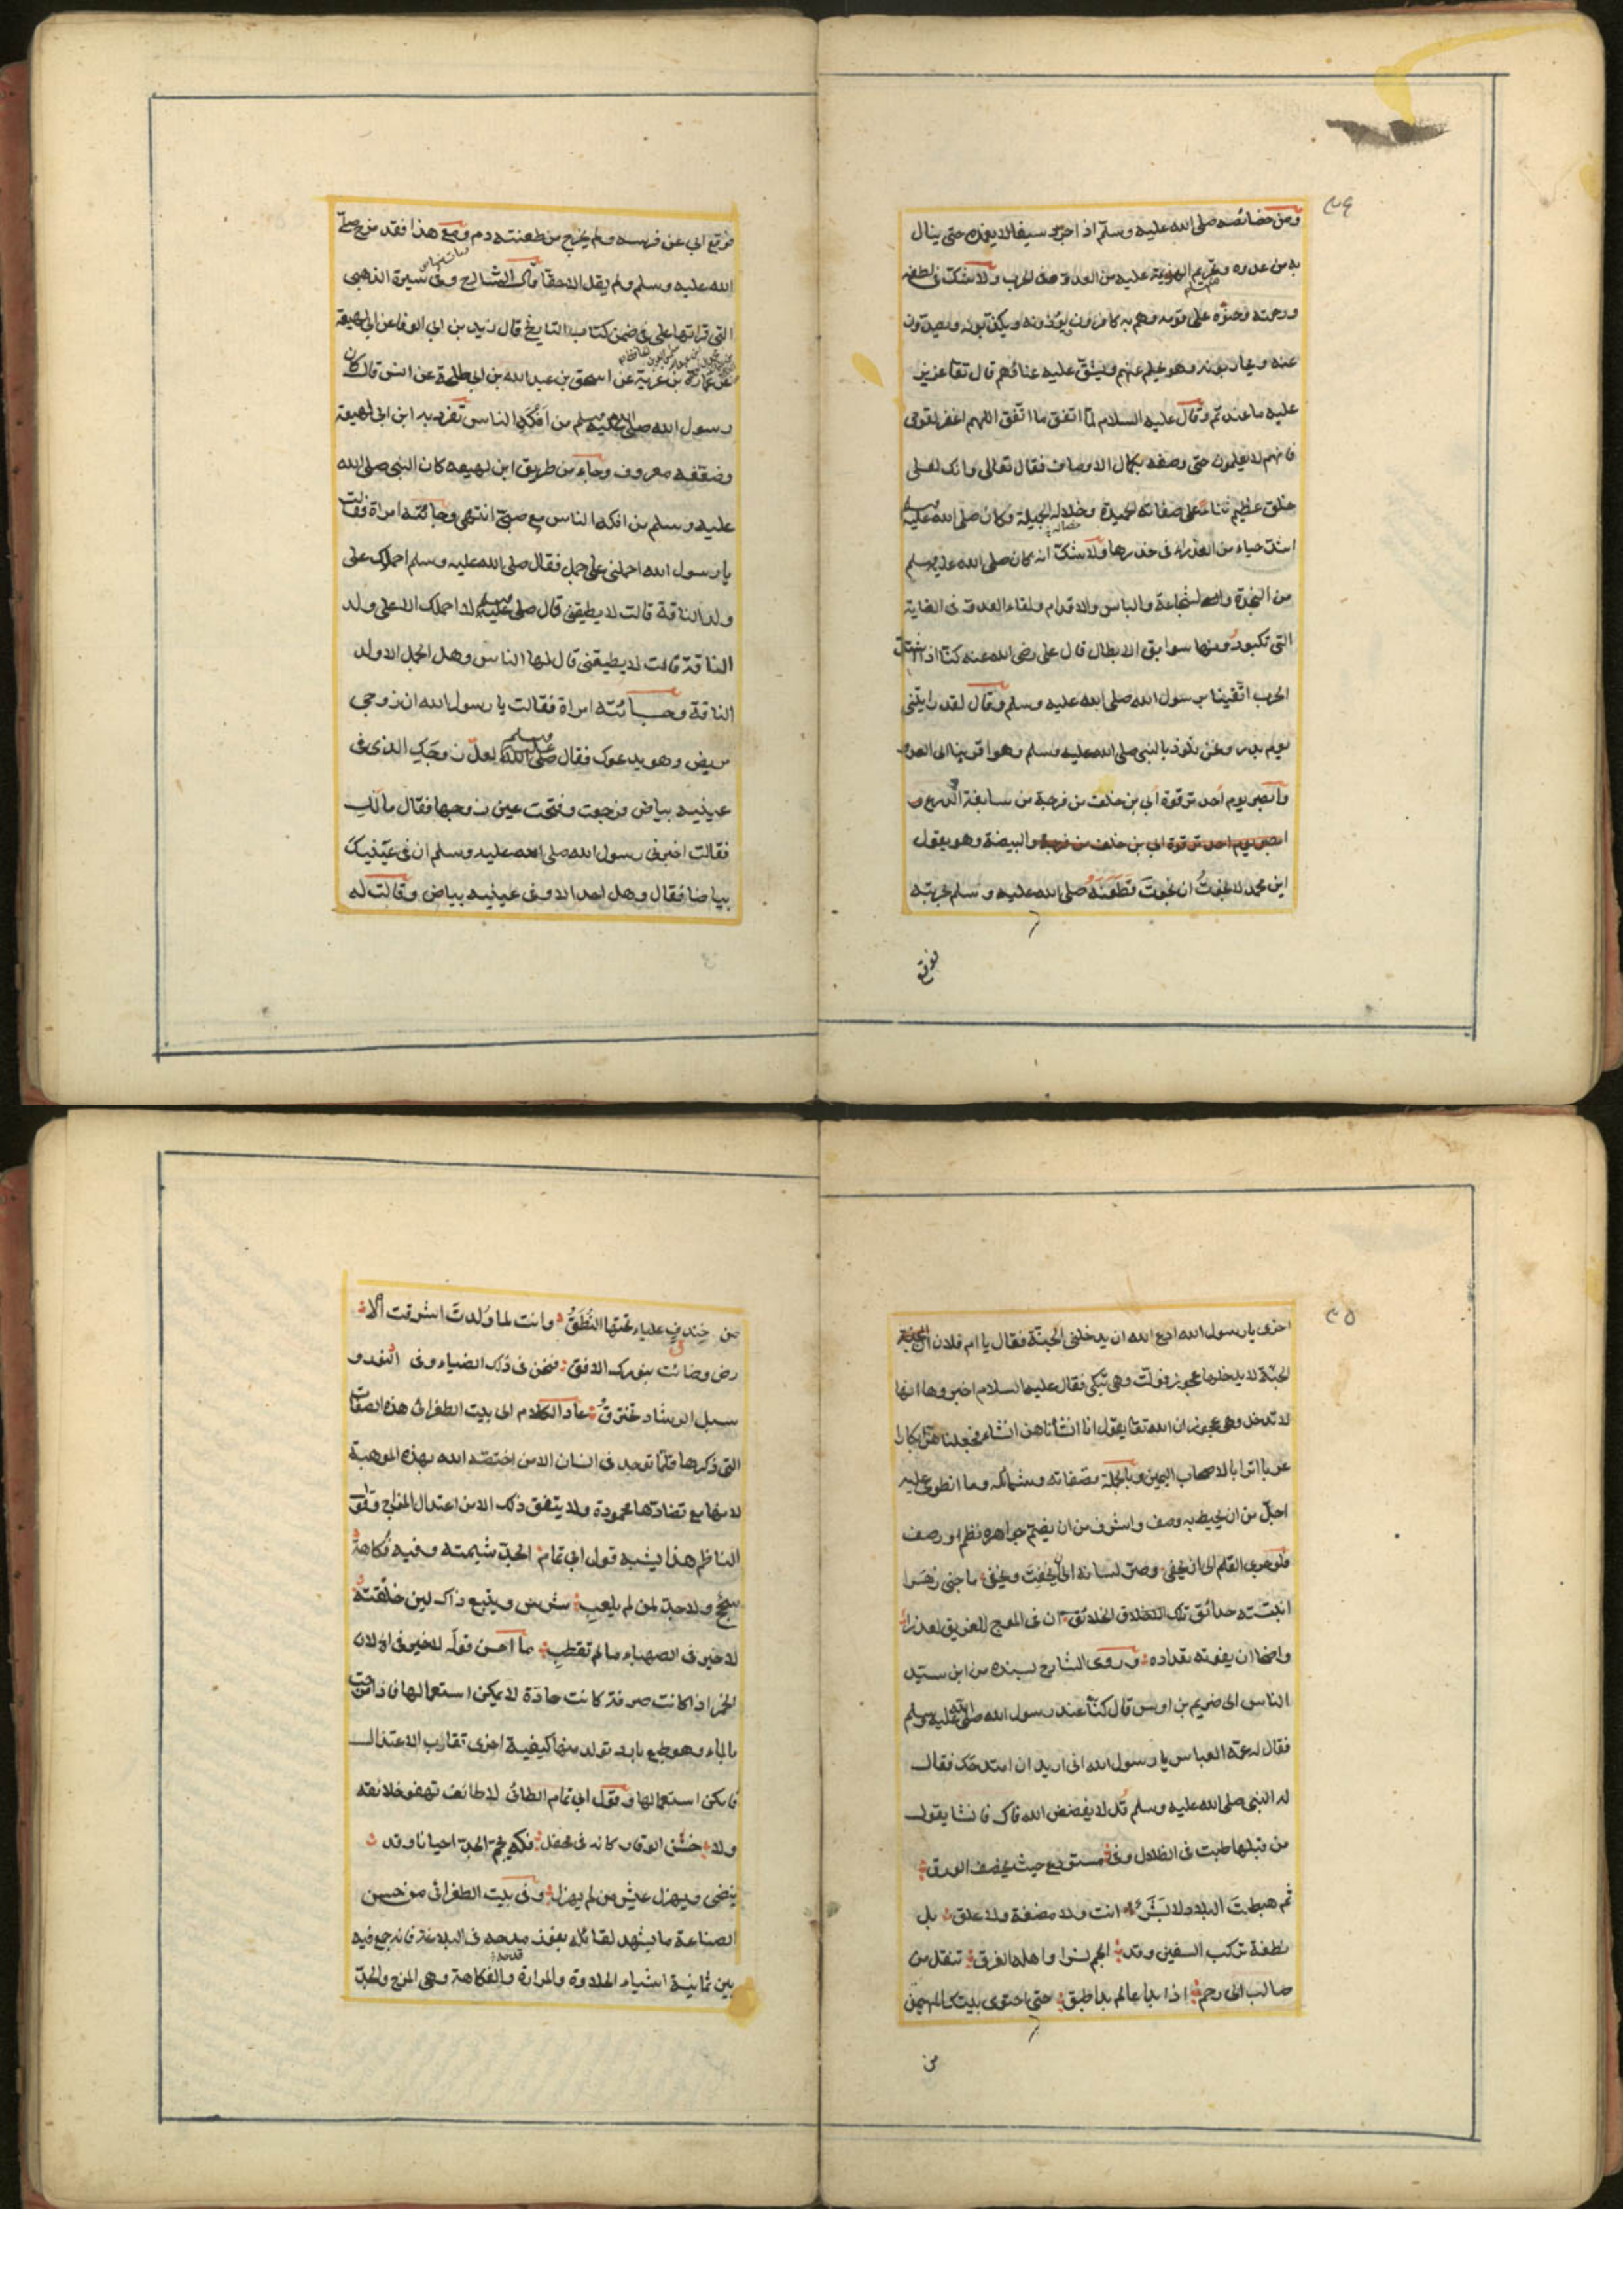 ومن خصائصه صلى الله عليه وسلم اذا جرد سيفا لا يغمده حتى ينال
به من عدوه وتحريم الهزيمة عليه من العدو فى الحرب ولا شك فى لطفه
ورحمته وحنوه على قومه وهم به كافرون يؤذونه ويكذبونه ويصدون
عنه ويحاربونه وهو عليهم ويشق عليه عنائهم قال تعا عزيز
عليه ما عنتم وقال عليه السلام لما اتفق ما اتفق اللهم اغفر لقومى
فانهم لا يعلمون حتى وصفه بكمال الاوصاف فقال تعالى وانك لعلى
خلق عظيم ثناء على صفاته الحميدة وخلاله الجميلة وكان صلى الله عليه وسلم
اشد حياء من العذراء فى خدرها ولا شك انه كان صلى الله عليه وسلم
من النجدة والشجاعة والباس والاقدام ولقاء العدو فى الغاية
التى تكبو دونها سوابق الابطال قال على رضى الله عنه كنا اذا اشتد
الحرب اتقينا برسول الله صلى الله عليه وسلم وقال لقد رايتنى
يوم بدر ونحن نلوذ بالنبى صلى الله عليه وسلم وهو اقربنا الى العدو
وابصر يوم احد ترقوة ابي بن خلف من فرجة من سابغة الدرع و
ابصر يوم احد ترقوة ابي بن خلف من فرجة والبيضة وهو يقول
اين محمد لا نجوتُ ان نجوتَ فطعنه صلى الله عليه وسلم بحربته
فوقع
فوقع ابي عن فرسه ولم يخرج من طعنته دم ومع هذا فقد مزح صلى
الله عليه وسلم ولم يقل الا حقا قال الشارح وفى سيرة الذهبى
التى قراتها على فى ضمن كتاب التاريخ قال زيد بن ابي الوفا عن ابي لهيعة
عن عمارة بن غزية عن اسحق بن عبد الله بن ابي طلحة عن انس قال كان
رسول الله صلى الله عليه وسلم من افكه الناس تفرد به ابن ابي لهيعة
وضعفه معروف وجاء من طريق ابن لهيعه كان النبى صلى الله
عليه وسلم من افكه الناس مع صبى انتهى وجائته امراة فقالت
يا رسول الله احملنى على جمل فقال صلى الله عليه وسلم احملك على
ولد الناقة قالت لا يطيقنى قال صلى عليه وسلم لا احملك الا على ولد
الناقة قالت لا يطيقنى قال لها الناس وهل الجمل الا ولد
الناقة وجائته امراة فقالت يا رسول الله ان زوجى
مريض وهو يدعوك فقال صلى الله عليه وسلم لعل زوجك الذى فى
عينيه بياض فرجعت وفتحت عين زوجها فقال مالك
فقالت اخبرنى رسول الله صلى الله عليه وسلم ان فى عينيك
بياضا فقال وهل احد الا وفى عينيه بياض وقالت له
اخرى يا رسول الله ادع الله ان يدخلنى الجنة فقال يا ام فلان ان الجنة
الجنة لا يدخلها عجوز فولت وهى تبكى فقال عليه السلام اخبروها انها
لا تدخل وهى عجوز ان الله تعا يقول انا انشأناهن انشاء فجعلناهن ابكارا
عربا اترابا لاصحاب اليمين وبالجملة فصفاته وشمائله وما انطوى عليه
اجل من ان يحيط به وصف واشرف من ان يضم جواهره نظم او رصف
انبتته حدائق تلك الاخلاق الخلائق ان فى الموج للغريق لعذرا
واضحا ان يفوته تعداده وروى الشارح بسنده من ابن سيد
الناس الى خريم بن اوس قال كنا عند رسول الله صلى الله عليه وسلم
فقال له عمه العباس يا رسول الله انى اريد ان امتدحك فقال
له النبى صلى الله عليه وسلم قل لا يفضض الله فاك فانشا يقول
من قبلها طبت فى الظلال وفى مستودع حيث يخصف الورق
ثم هبطت البلاد لا بشر انت ولا مضغة ولا علق بل
نطفة تركب السفين وقد الجم نسرا واهله الغرق تنقل من
صالب الى رحم اذا بدا عالم بدا طبق حتى احتوى بيتك المهيمن
من
من خندف علياء تحتها النطق وانت لما ولدت اشرقت الا
رض وضائت بنورك الافق فنحن فى ذلك الضياء وفى النور و
سبل الرشاد نخترق عاد الكلام الى بيت الطغرائى هذه الصفات
التى ذكرها قلما توجد فى انسان الا من اختصه الله بهذه الموهبة
لانها مع تضادتها محمودة ولا يتفق ذلك الا من اعتدال المزاج وقول
الناظم هذا يشبه قول ابي تمام الجد شيمته وفيه فكاهة
سجح ولا جد لمن لم يلعب شرس ويتبع ذاك لين خليقته
لا خير فى الصهباء ما لم تقطب ما احسن قوله لا خير فى الخ لان
الخمر اذا كانت صرفة كانت حادة لا يمكن استعمالها فاذا مزجت
بالماء وهو طبع بارد تولد منها كيفية اخرى تقارب الاعتدال
فامكن استعمالها وقول ابي تمام الطائى لا طائف تهفو خلائقه
ولا خشن الوقار كانه فى محفل فكه يجم الجد احيانا وقد
ينضى ويهزل عيش من لم يهزل وفى بيت الطغرائى من حسن
الصناعة ما يشهد لقائله بفوز قدحه فى البلاغة فانه جمع فيه
بين ثمانية اشياء الحلاوة والمرارة والفكاهة وهى المزح والجد